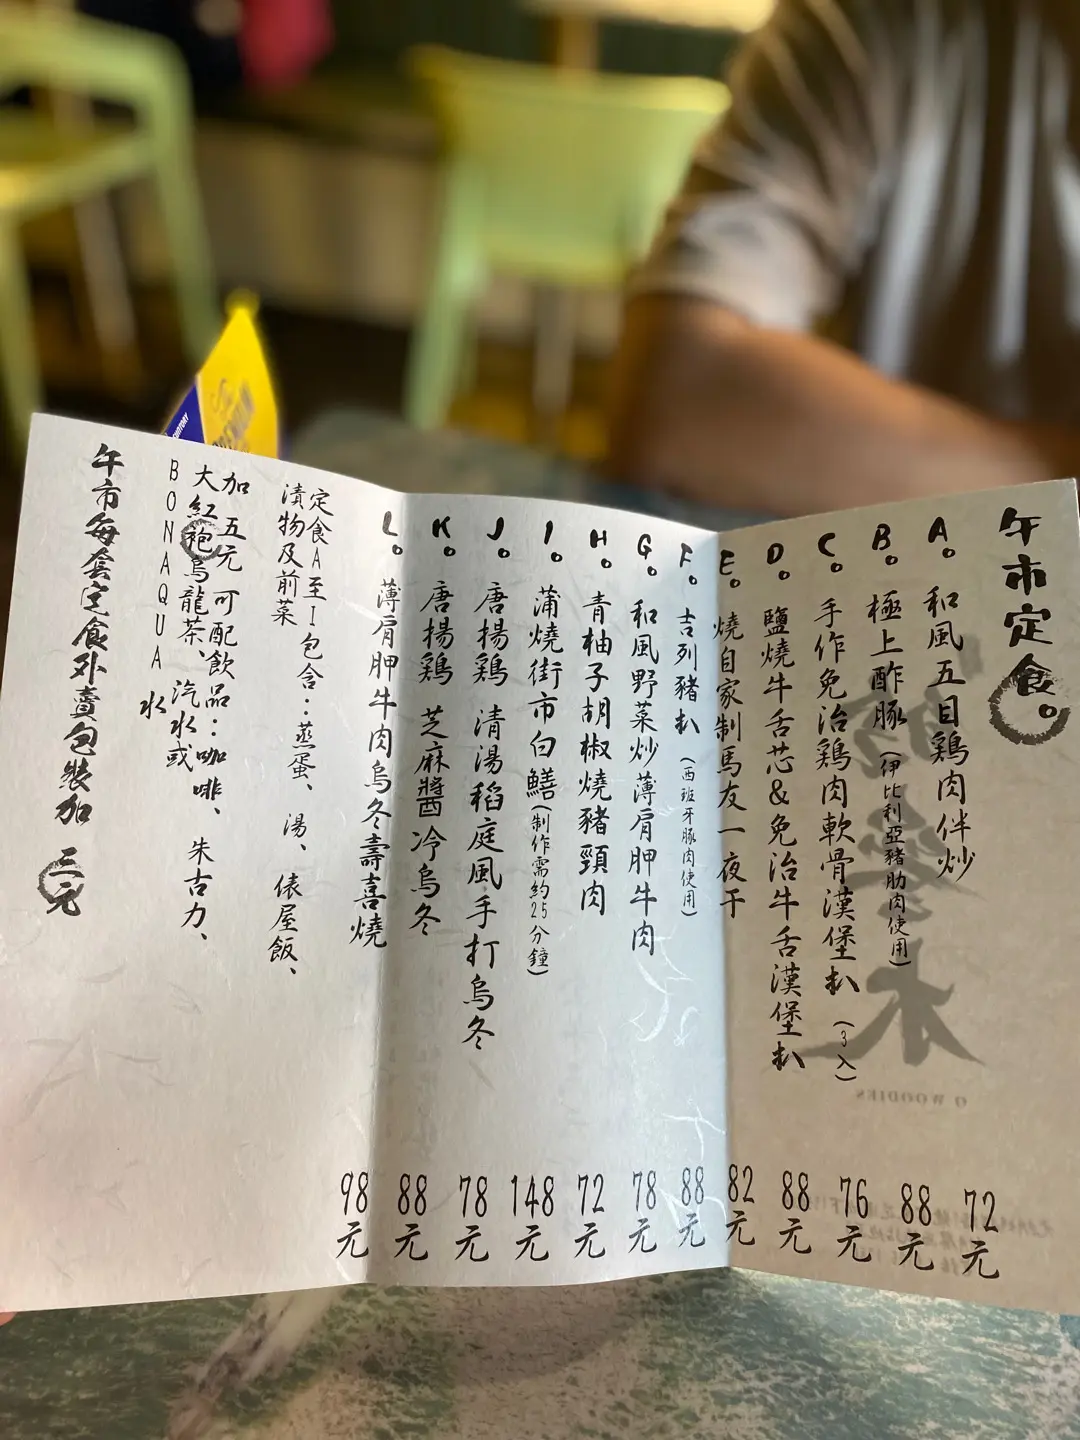 午市定食。
A。和風五目鷄肉伴炒 72元
B。極上酢豚(伊比利亞豬肋肉使用) 88元
C。手作免治鷄肉軟骨漢堡扒(3入) 76元
D。鹽燒牛舌芯&免治牛舌漢堡扒 88元
E。燒自家制馬友一夜干 82元
F。吉列豬扒(西班牙豚肉使用) 88元
G。和風野菜炒薄肩胛牛肉 78元
H。青柚子胡椒燒豬頸肉 72元
I。蒲燒街市白鱔(制作需約25分鐘) 148元
J。唐揚鷄 清湯稻庭風手打烏冬 78元
K。唐揚鷄 芝麻醬冷烏冬 88元
L。薄肩胛牛肉烏冬壽喜燒 98元
定食A至I包含:蒸蛋、湯、俵屋飯、
漬物及前菜
加五元可配飲品:咖啡、朱古力、
大紅袍烏龍茶、汽水或
BONAQUA水
午市每套定食外賣包裝加 三元
O WOODIES